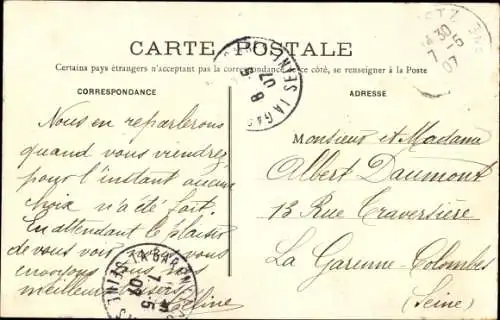 CARTE POSTALE
Certains pays étrangers n'acceptant pas la correspondance de ce côté, se renseigner à la Poste
CORRESPONDANCE
Nous en reparlerons
quand vous viendrez
pour l'instant aucun
choix n'a été fait.
En attendant le plaisir
de vous voir vous
envoyons tous nos
meilleurs baisers
ADRESSE
Monsieur et Madame
Albert Daumont
13 Rue Traversière
La Garenne-Colombes
(Seine)
30
7-5
07
8-5
07
SEINE
7-5
07
SEINE